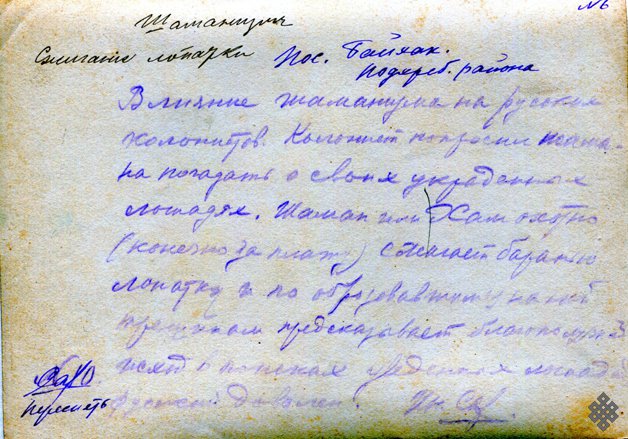 №6
Шаманизм
Сжигание лопатки
Пос. Байхак.
Подхреб. района
Влияние шаманизма на русских
колонистов. Колонист попросил шама-
на погадать о своих украденных
лошадях. Шаман или Хам охотно
(конечно за плату) сжигает баранью
лопатку и по образовавшимся на ней
трещинам предсказывает благополучный
исход о поисках лошадей
Русский доволен.
переснять